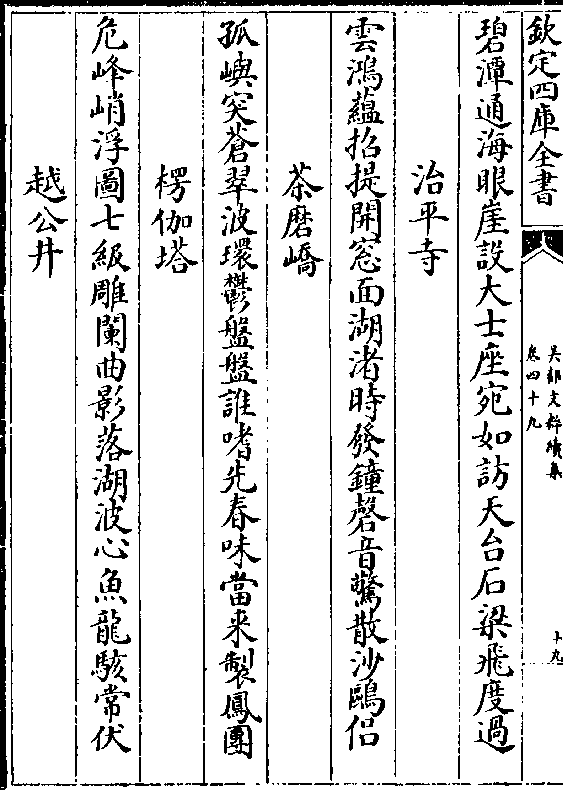 欽定四庫全書
吳都文粹續集
卷四十九
十九
碧潭通海眼崖設大士座宛如訪天台石梁飛度過
治平寺
雲鴻蘊招提開窓面湖渚時發鐘磬音驚散沙鷗侣
茶磨嶠
孤嶼突蒼翠波環鬱盤盤誰嗜先春味當来製鳳團
楞伽塔
危峰峭浮圖七級雕闌曲影落湖波心魚龍駭常伏
越公井